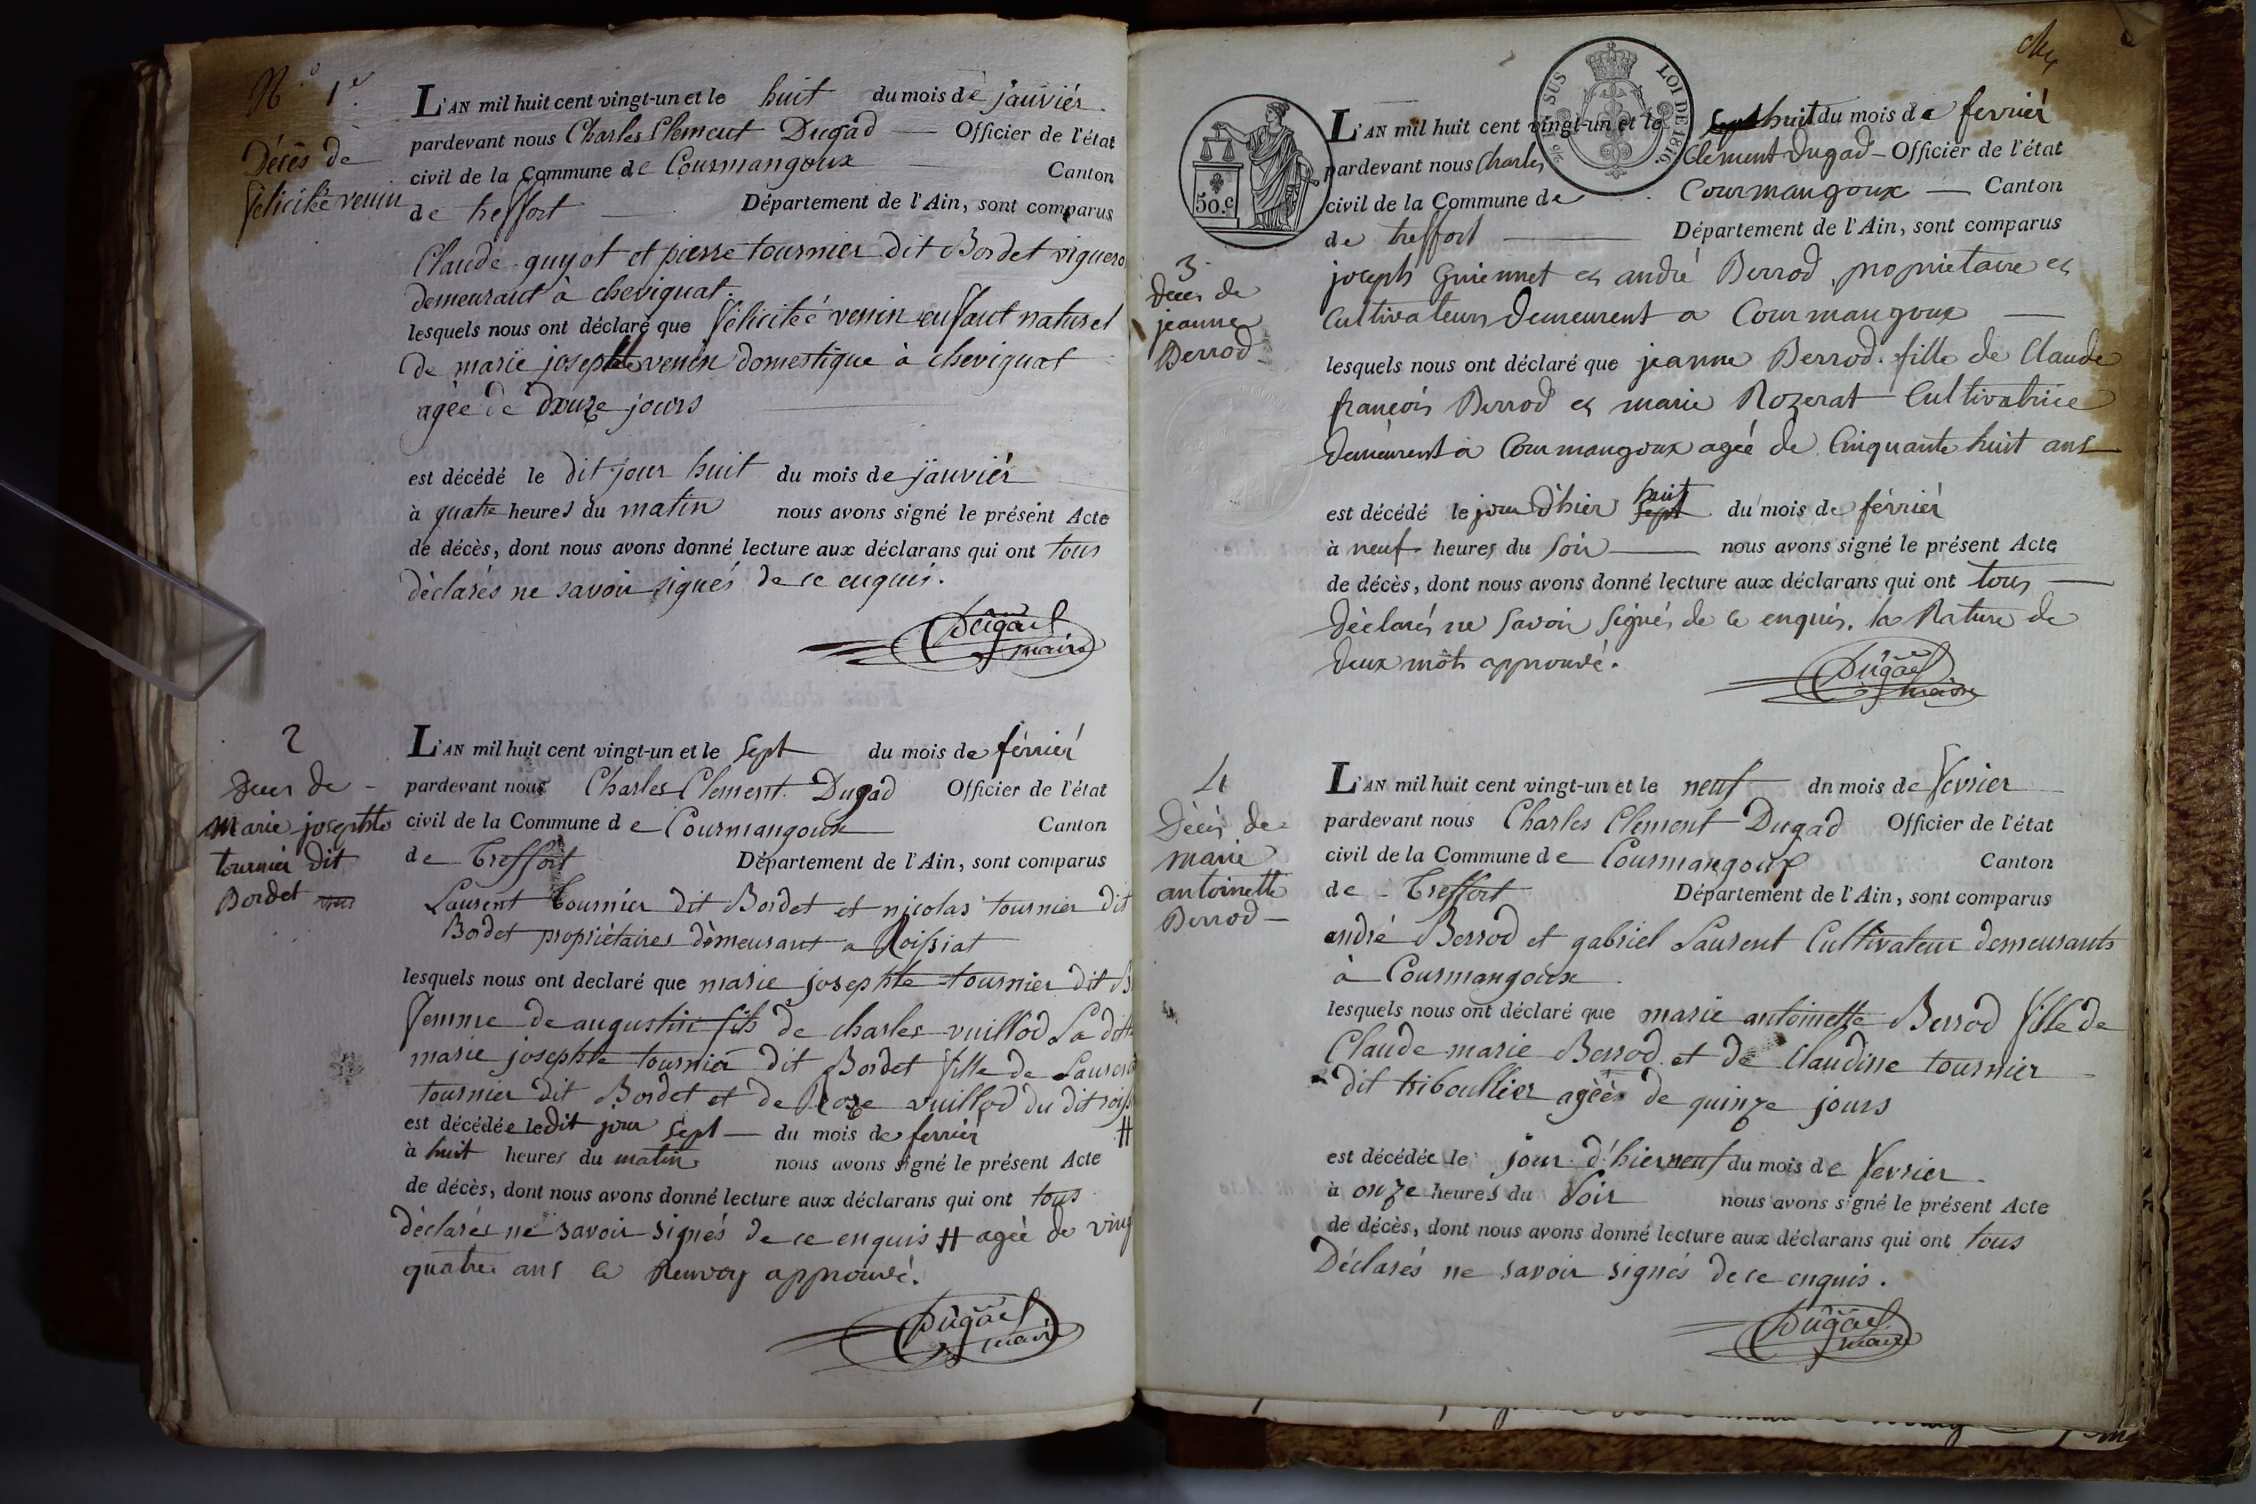 N.º 1er.
Décès de
félicité venin
L'AN mil huit cent vingt-un et le huit du mois de janvier
pardevant nous Charles Clement Dugad — Officier de l'état
civil de la Commune de Courmangoux — Canton
de treffort — Département de l'Ain, sont comparus
Claude guyot et pierre tournier dit Bordet vignero
demeurant à chevignat.
lesquels nous ont déclaré que félicité venin enfant naturel
de marie josephte venin domestique à chevignat
agée de douze jours
est décédé le dit jour huit du mois de janvier
à quatre heures du matin nous avons signé le présent Acte
de décès, dont nous avons donné lecture aux déclarans qui ont tous
déclarés ne savoir signés de ce enquis.
Dugad
maire
2
Deces de
Marie josephte
tournier dit
Bordet
L'AN mil huit cent vingt-un et le sept du mois de février
pardevant nous Charles Clement Dugad Officier de l'état
civil de la Commune de Courmangoux Canton
de Treffort Département de l'Ain, sont comparus
Laurent Tournier dit Bordet et nicolas tournier dit
Bordet propriétaires demeurant a Roissiat
lesquels nous ont declaré que marie josephte tournier dit B
femme de augustin fils de charles vuillod La ditte
marie josephte tournier dit Bordet fille de Laurent
tournier dit Bordet et de Roze vuillod du dit roiss
est décédée le dit jour sept — du mois de fevrier #
à huit heures du matin nous avons signé le présent Acte
de décès, dont nous avons donné lecture aux déclarans qui ont tous
déclarés ne savoir signés de ce enquis # agée de ving
quatre ans le Renvoy approuvé.
Dugad
maire
SUS
LOI DE 1816.
50.c
L'AN mil huit cent vingt-un et le sept huit du mois de fevrier
pardevant nous Charles Clement Dugad — Officier de l'état
civil de la Commune de Courmangoux — Canton
de treffort — Département de l'Ain, sont comparus
3
Deces de
jeanne
Berrod
joseph Guiennet et andré Berrod, propriétaire et
Cultivateurs Demeurent a Courmangoux —
lesquels nous ont déclaré que jeanne Berrod. fille de Claude
françois Berrod et marie Rozerat Cultivatrice
demeurent a Courmangoux agée de Cinquante huit ans
est décédé le jour d'hier sept huit du mois de février
à neuf heures du soir — nous avons signé le présent Acte
de décès, dont nous avons donné lecture aux déclarans qui ont tous —
déclarés ne savoir signés de ce enquis. la Rature de
deux mots approuvé.
Dugad
maire
4
Décès de
marie
antoinette
Berrod —
L'AN mil huit cent vingt-un et le neuf du mois de fevrier
pardevant nous Charles Clement Dugad Officier de l'état
civil de la Commune de Courmangoux Canton
de - Treffort Département de l'Ain, sont comparus
andré Berrod et gabriel Laurent Cultivateur demeurants
à Courmangoux
lesquels nous ont déclaré que marie antoinette Berrod fille de
Claude marie Berrod et de Claudine tournier
dit triboullier agéé de quinze jours
est décédée le jour d'hier neuf du mois de fevrier
à onze heures du Soir nous avons signé le présent Acte
de décès, dont nous avons donné lecture aux déclarans qui ont tous
Déclarés ne savoir signés de ce enquis.
Dugad
maire